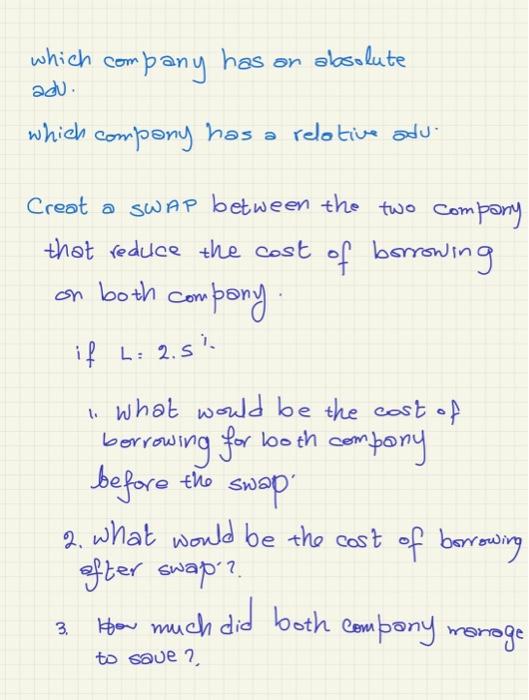 which company has an absolute
adv.
which company has a relative adv.
Creat a SWAP between the two company
that reduce the cost of borrowing
on both company.
if L: 2.5%
1. what would be the cost of
borrowing for both company
before the swap.
2. what would be the cost of borrowing
after swap?
3. How much did both company manage
to save?